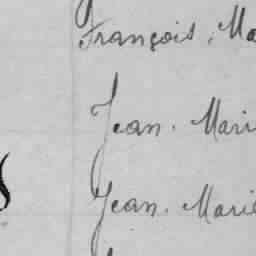 François, Ma
Jean. Mari
Jean. Marie